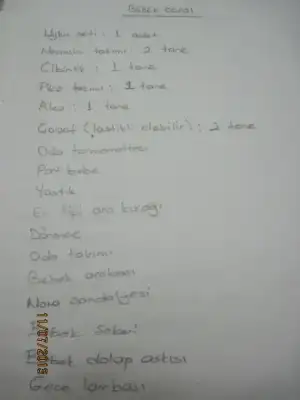 BEBEK ODASI
Uyku seti : 1 adet
Nevresim takımı : 2 tane
Cibinlik : 1 tane
Pike takımı : 1 tane
Alez : 1 tane
Çarşaf (lastikli olabilir) : 2 tane
Oda termometresi
Yastık
Ev tipi ana kucağı
Dönence
Oda takımı
Bebek arabası
Mama sandalyesi
Bebek dolap askısı
Gece lambası
11/07/2013